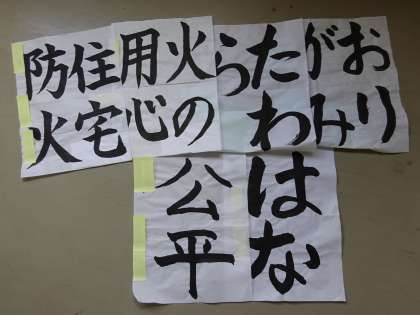 おり
がみ
たわ
ら
火の
用心
住宅
防火
はな
公平